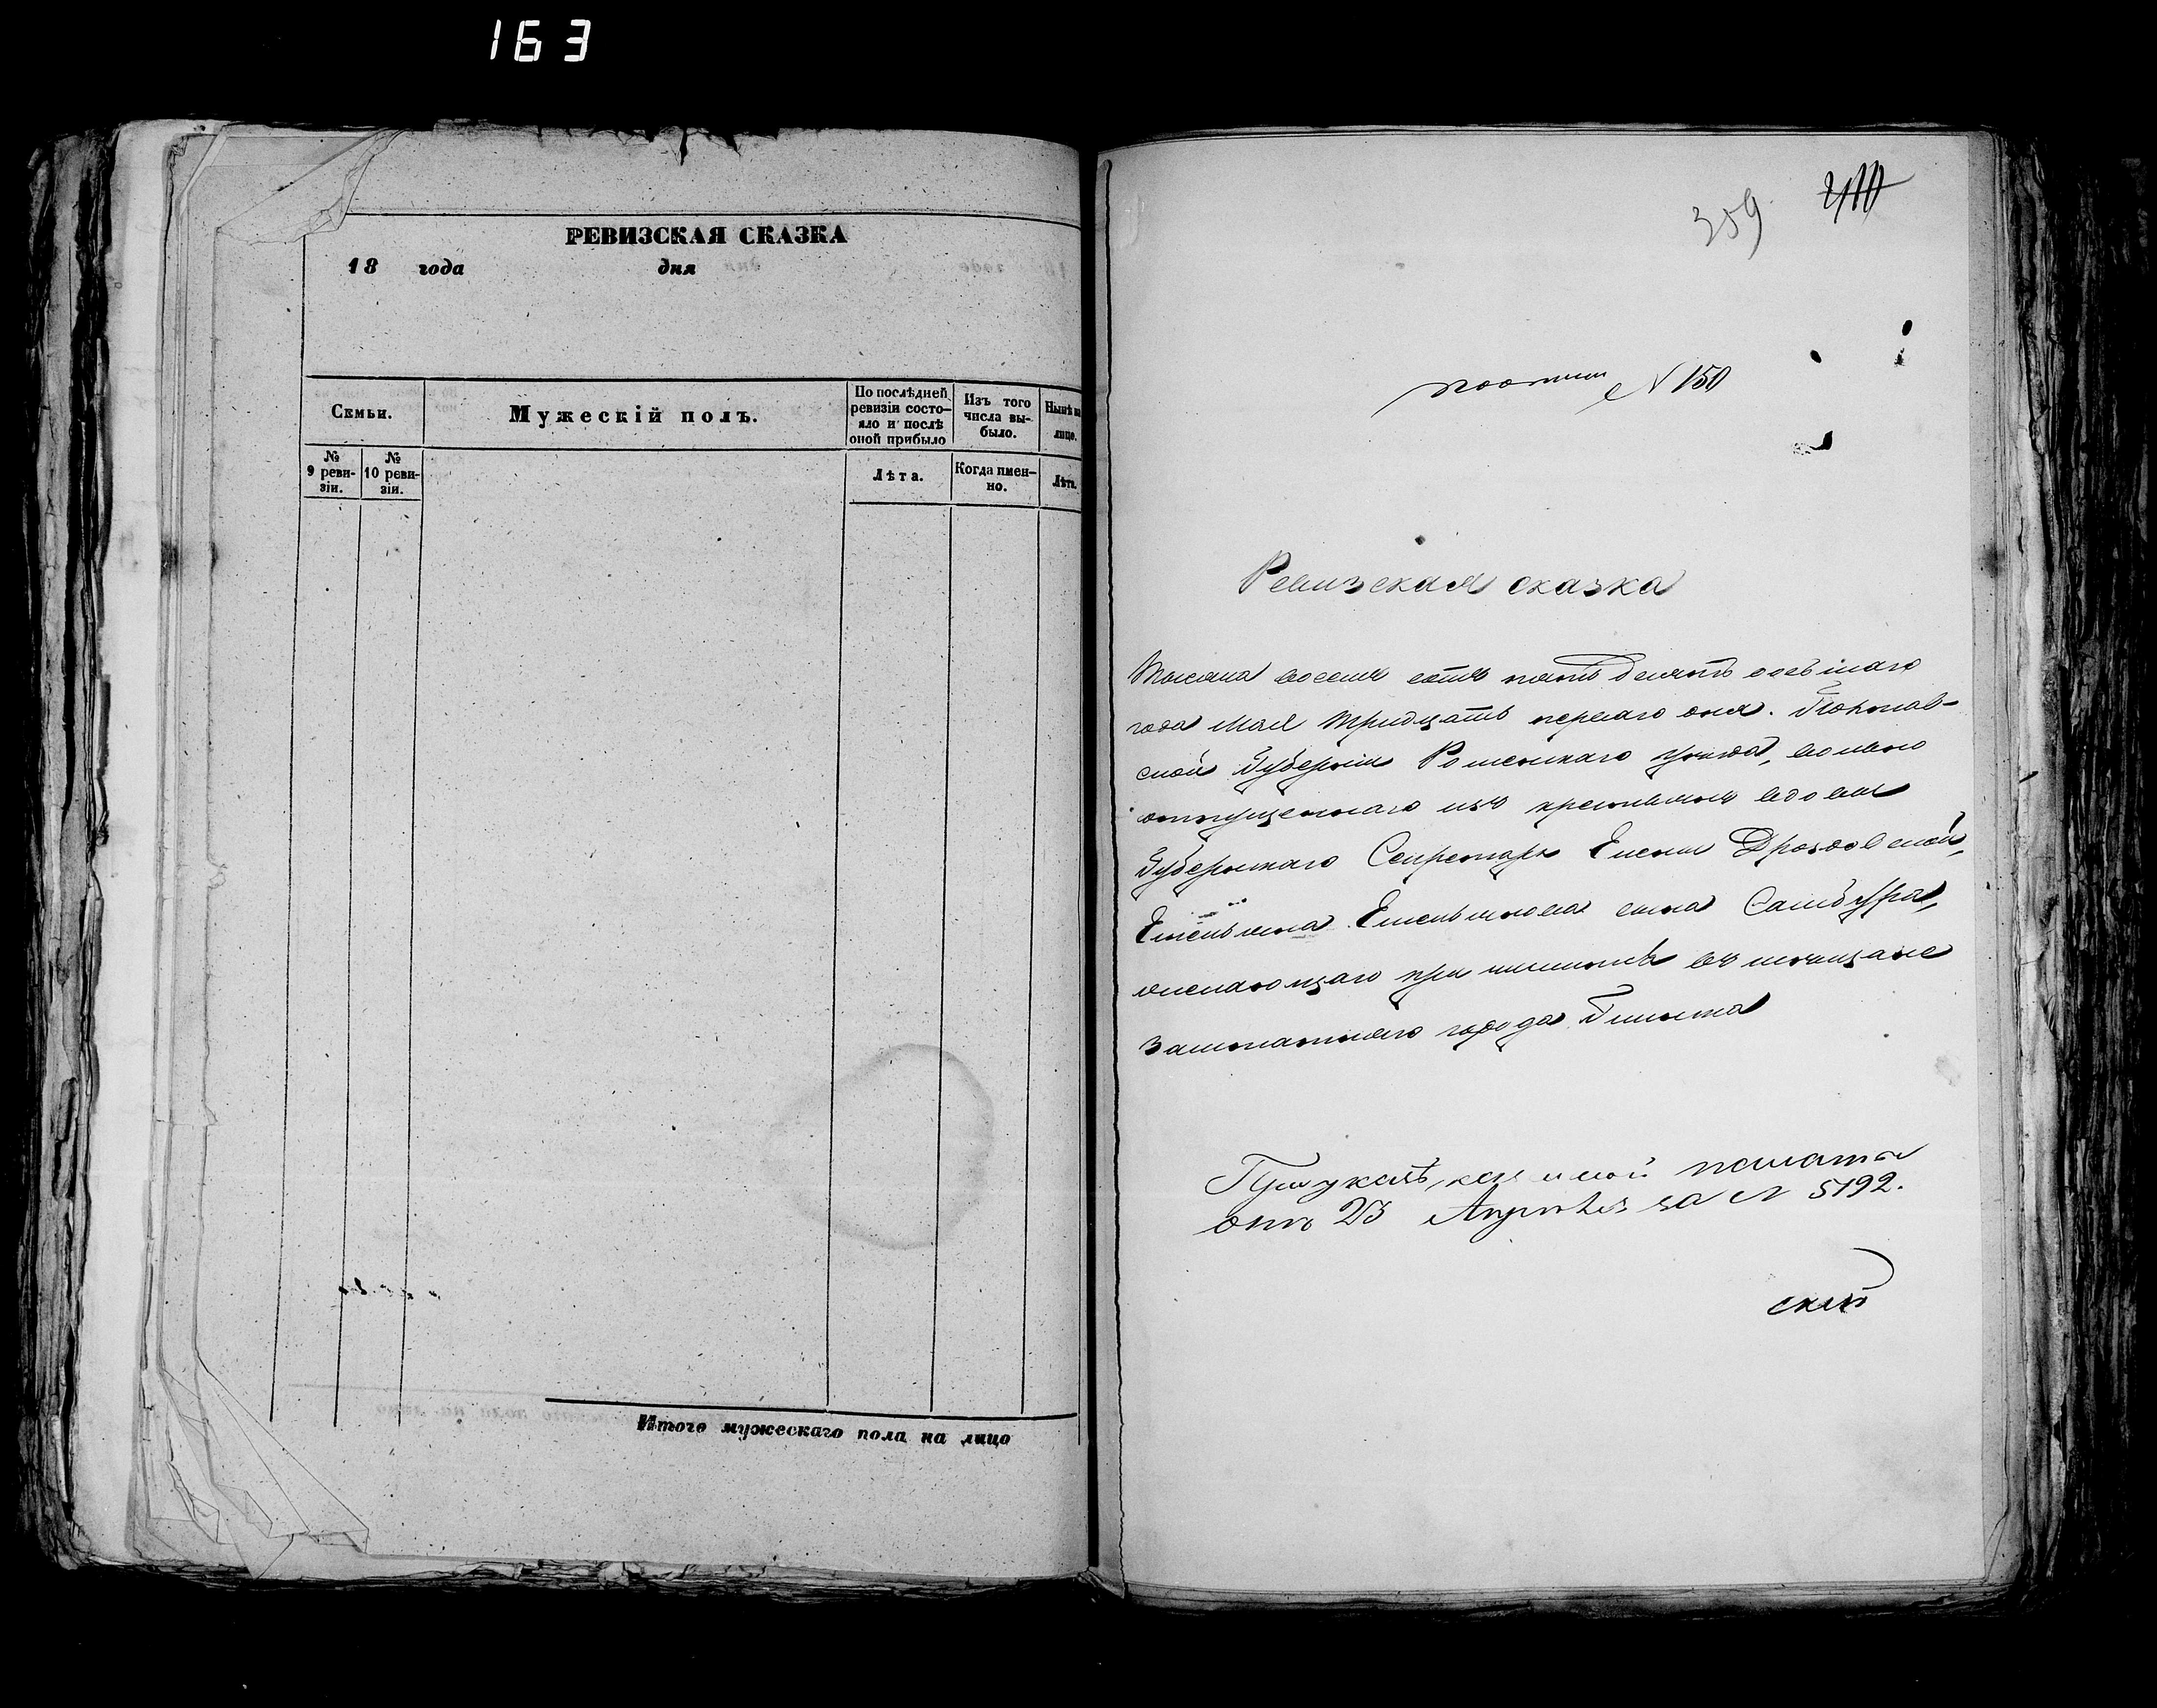 163
РЕВИЗСКАЯ СКАЗКА
18 года дня
Семьи.
Мужескій полъ.
По послѣдней ревизіи состо-
яло и послѣ
оной прибыло
Изъ того
числа вы-
было.
Нынѣ на
лицо.
№
9 реви-
зіи.
№
10 реви-
зіи.
Лѣта.
Когда имен-
но.
Лѣта.
Итого мужескаго пола на лицо
359
N 150
Ревизская сказка
Тысяча восемь сотъ пять десятъ осьмаго
года Мая тридцать перваго дня. Полтав-
ской Губерніи Роменскаго уѣзда, вольно
отпущеннаго изъ крестьянъ вдовы
Губернскаго Секретаря Елены Дроздовской,
Емельяна Емельянова сына Самбура,
желающаго при въ мѣщане
Заштатнаго города Глинска
палаты
отъ 23 Апрѣля за N 5192.